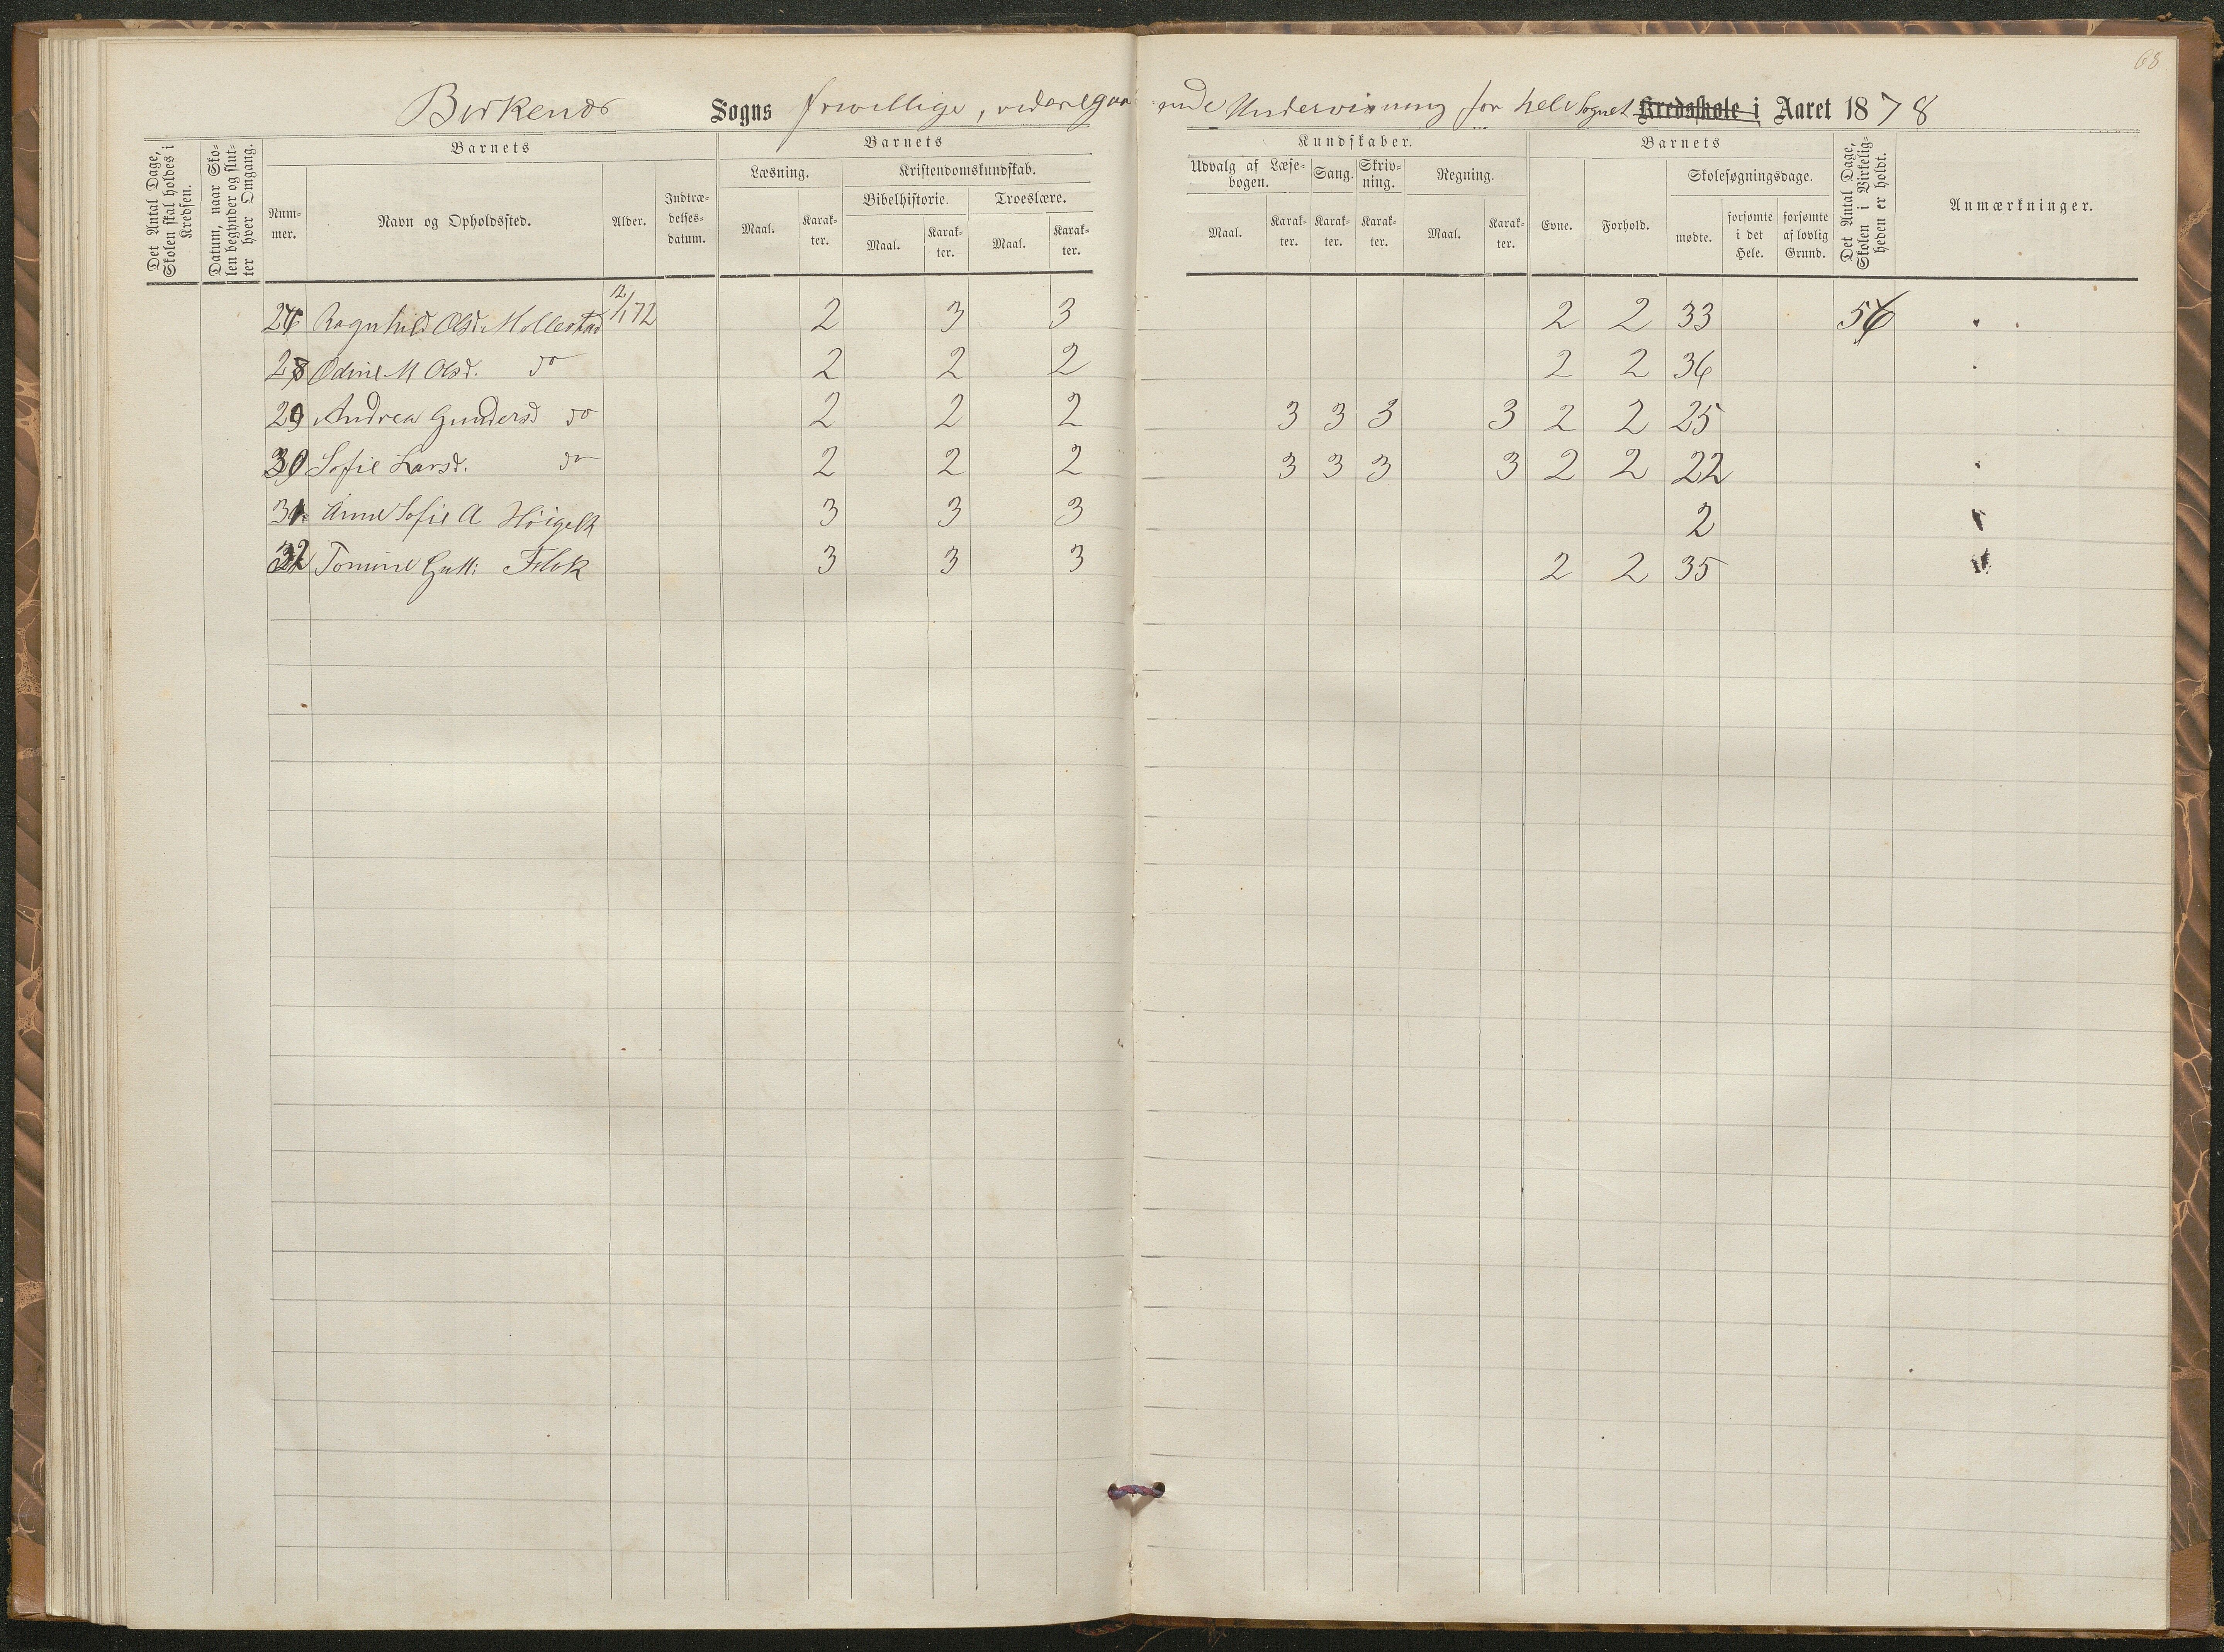 68
Birkenæs Sogns friwillige, videregaaende Undervisning for hele Sognet Kredsskole i Aaret 1878
Det Antal Dage, Skolen skal holdes i Kredsen.
Datum, naar Skolen begynder og slutter hver Omgang.
Barnets
Nummer.
Navn og Opholdssted.
Alder.
Indtrædelsesdatum.
Barnets
Læsning.
Maal.
Karakter.
Kristendomskundskab.
Bibelhistorie.
Maal.
Karakter.
Troeslære.
Maal.
Karakter.
Kundskaber.
Udvalg af Læsebogen.
Maal.
Karakter.
Sang.
Karakter.
Skrivning.
Karakter.
Regning.
Maal.
Karakter.
Barnets
Evne.
Forhold.
Skolesøgningsdage.
mødte.
forsømte i det Hele.
forsømte af lovlig Grund.
Det Antal Dage, Skolen i Virkeligheden er holdt.
Anmærkninger.
Ragnhild Olsd. Mollestad 12/1 72 2 3 3 2 2 33
28 Odine M Olsd. do 2 2 2 2 2 36
29 Andrea Gundersd do 2 2 2 3 3 3 3 2 2 25
30 Sofie Larsd. do 2 2 2 3 3 3 3 2 2 22
31 Anne Sofie A Höigelt 3 3 3 2
32 Tomine Gutt: Flak 3 3 3 2 2 35